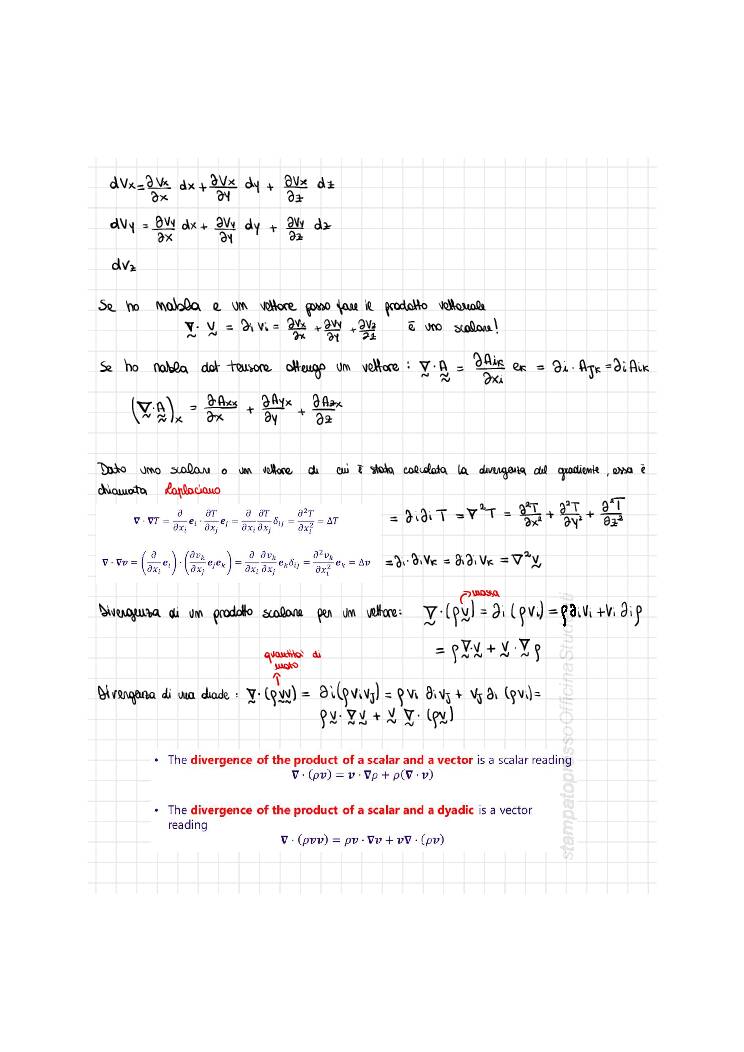 dVx = ∂Vx/∂x dx + ∂Vx/∂y dy + ∂Vx/∂z dz
dVy = ∂Vy/∂x dx + ∂Vy/∂y dy + ∂Vy/∂z dz
dVz
Se ho nabla e un vettore posso fare il prodotto vettoriale
∇ · V = ∂i Vi = ∂Vx/∂x + ∂Vy/∂y + ∂Vz/∂z è uno scalare!
Se ho nabla dot tensore ottengo un vettore : ∇ · A = ∂Aik/∂xi ek = ∂i · Ajk = ∂i Aik
(∇ · A)x = ∂Axx/∂x + ∂Ayx/∂y + ∂Azx/∂z
Dato uno scalare o un vettore di cui è stata calcolata la divergenza del gradiente, essa è
chiamata Laplaciano
∇ · ∇T = ∂/∂xi ei · ∂T/∂xj ej = ∂/∂xi ∂T/∂xj δij = ∂²T/∂xi² = ΔT = ∂i ∂i T = ∇²T = ∂²T/∂x² + ∂²T/∂y² + ∂²T/∂z²
∇ · ∇v = (∂/∂xi ei) · (∂vk/∂xj ej ek) = ∂/∂xi ∂vk/∂xj ek δij = ∂²vk/∂xi² ek = Δv = ∂i · ∂i Vk = ∂i ∂i Vk = ∇²V
massa
Divergenza di un prodotto scalare per un vettore: ∇ · (ρV) = ∂i (ρVi) = ρ∂iVi + Vi ∂iρ
= ρ∇·V + V · ∇ρ
quantità di
moto
Divergenza di una diade : ∇ · (ρVV) = ∂i(ρViVj) = ρVi ∂iVj + Vj ∂i (ρVi) =
ρV · ∇V + V ∇ · (ρV)
• The divergence of the product of a scalar and a vector is a scalar reading
∇ · (ρv) = v · ∇ρ + ρ(∇ · v)
• The divergence of the product of a scalar and a dyadic is a vector
reading
∇ · (ρvv) = ρv · ∇v + v∇ · (ρv)
stampatopressoOfficinaStudenti